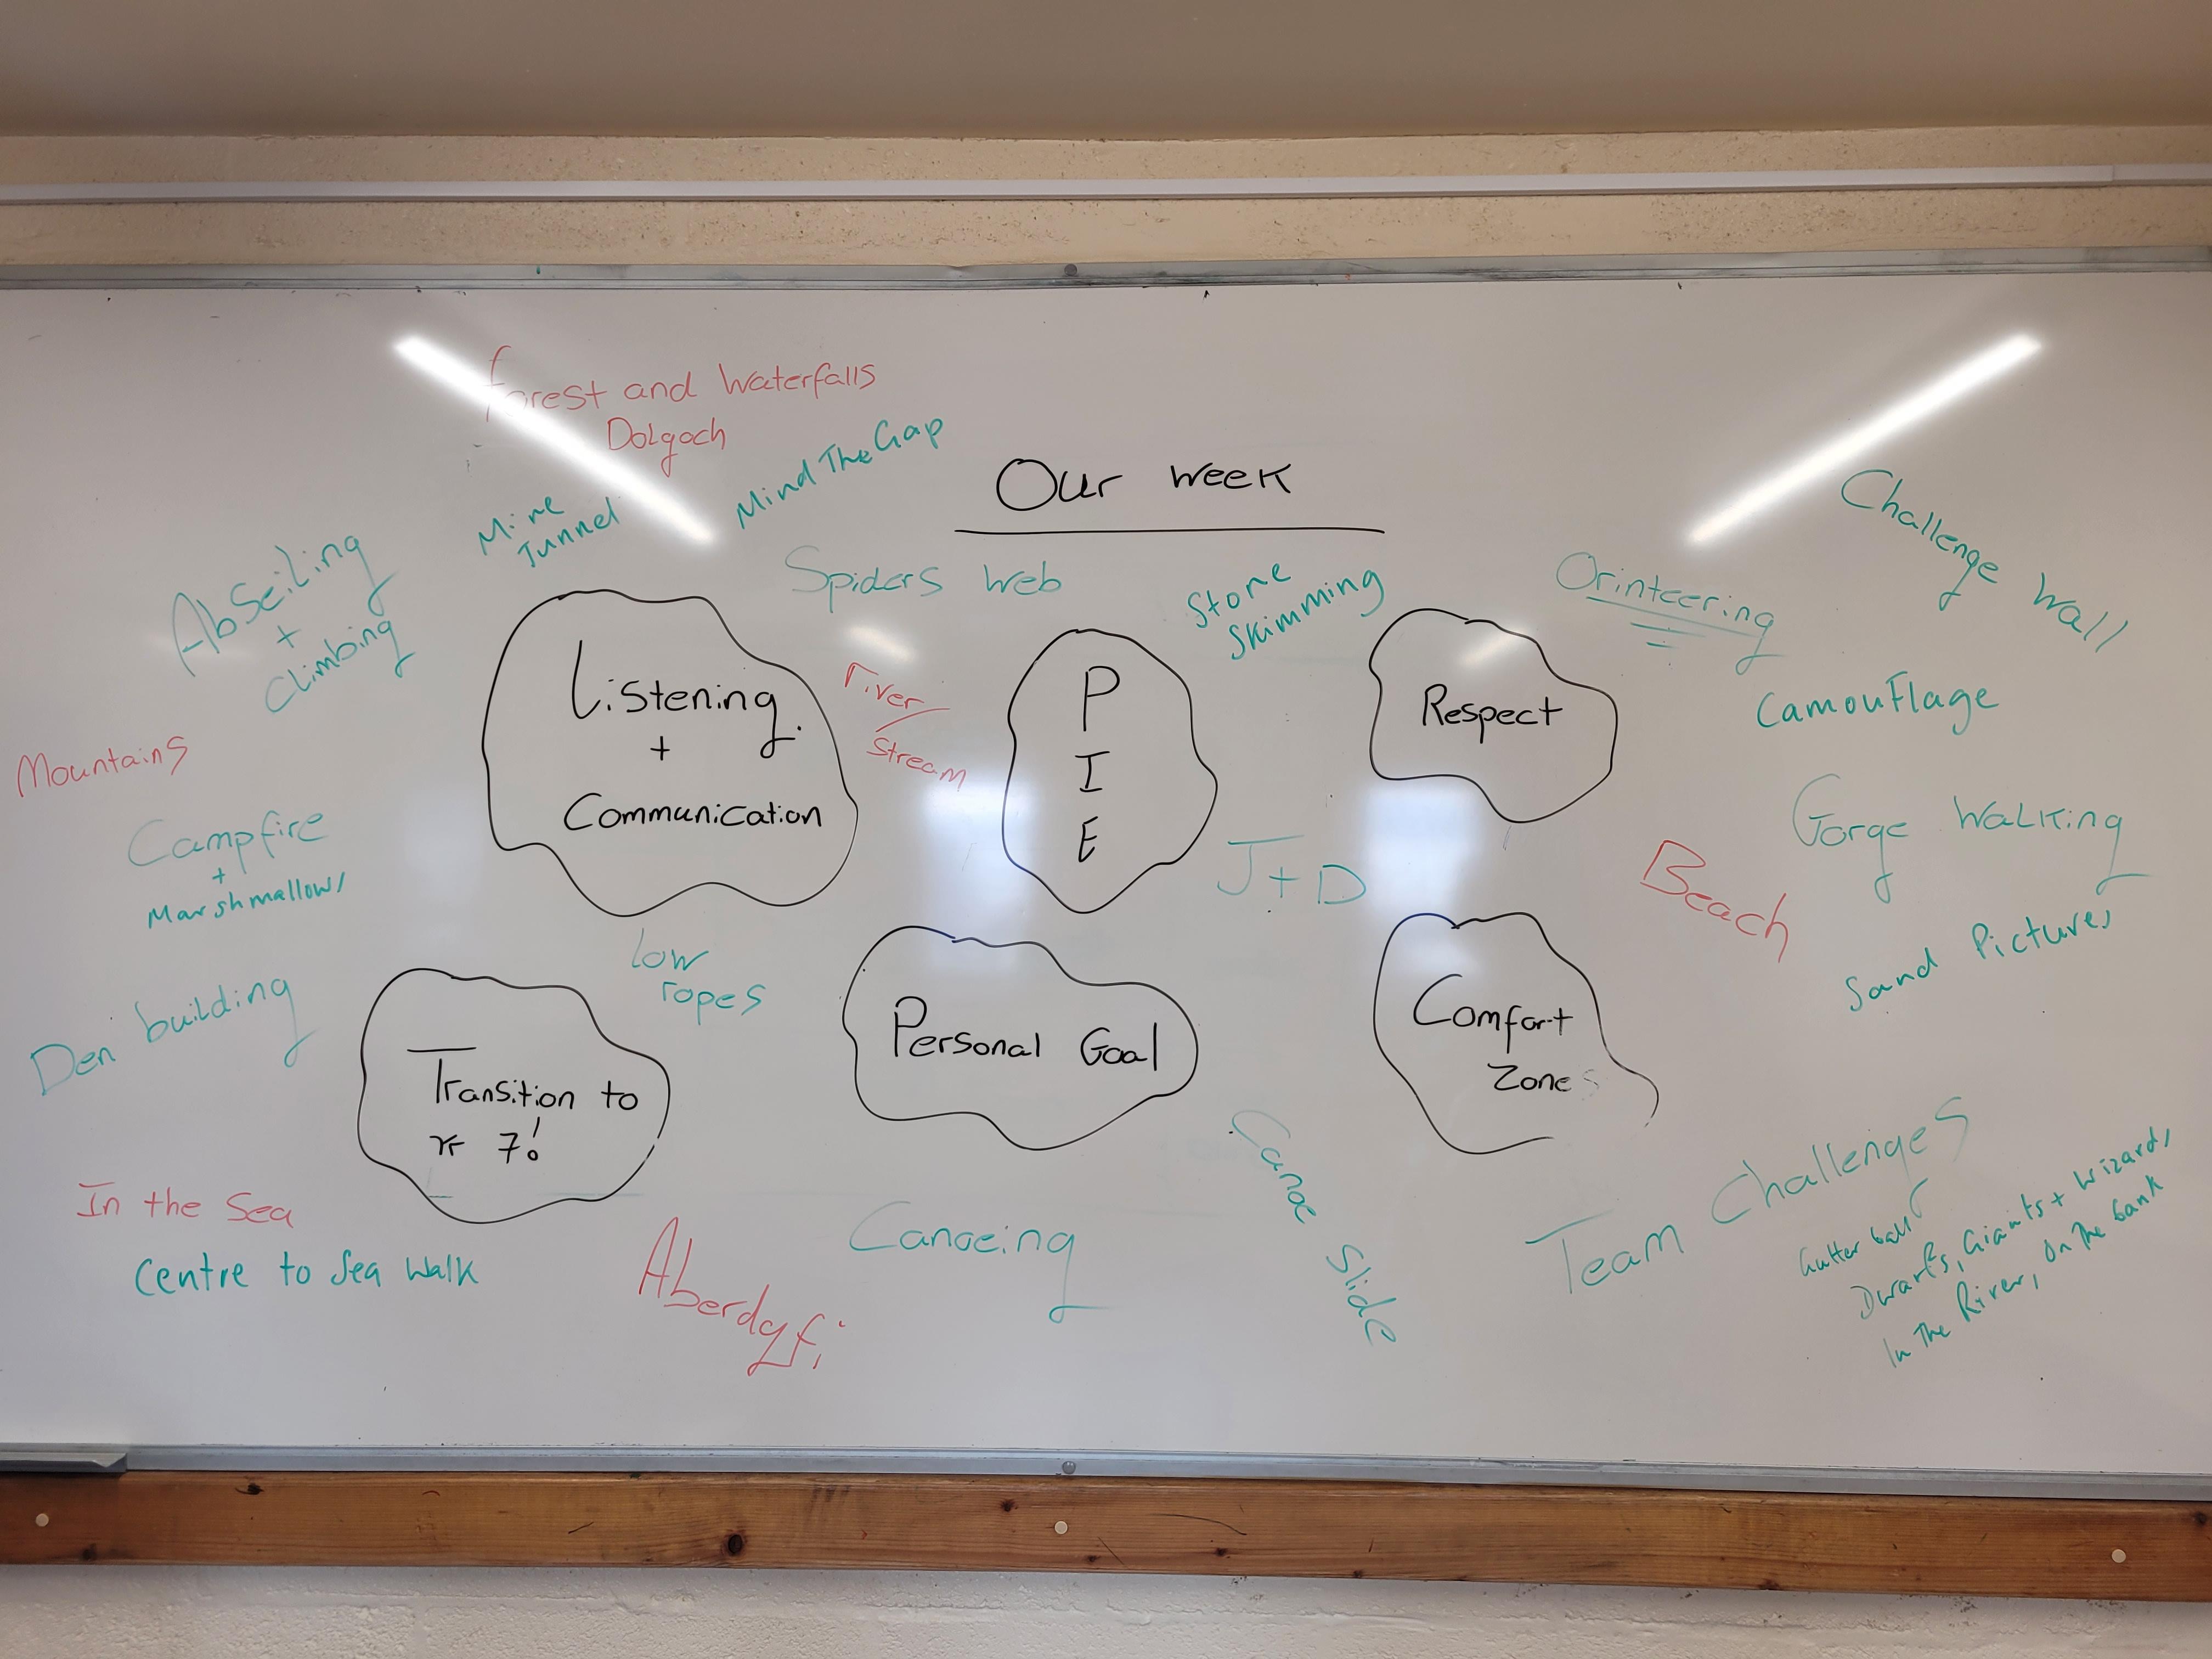 Forest and Waterfalls
Dolgoch
Mind The Gap
Our week
Mine
Tunnel
Abseiling
+
Climbing
Spiders Web
Stone
Skimming
Orinteering
Challenge Wall
Listening
+
Communication
River/
Stream
P
I
E
Respect
Camouflage
Mountains
Campfire
+
Marshmallows
J+D
Beach
Gorge Walking
Sand Pictures
Den building
Low
ropes
Transition to
yr 7!
Personal Goal
Comfort
Zones
In the Sea
Centre to Sea Walk
Aberdyfi
Canoeing
Canoe Slide
Team Challenges
Gutter ball
Dwarfs, Giants + Wizards,
In The River, On The bank